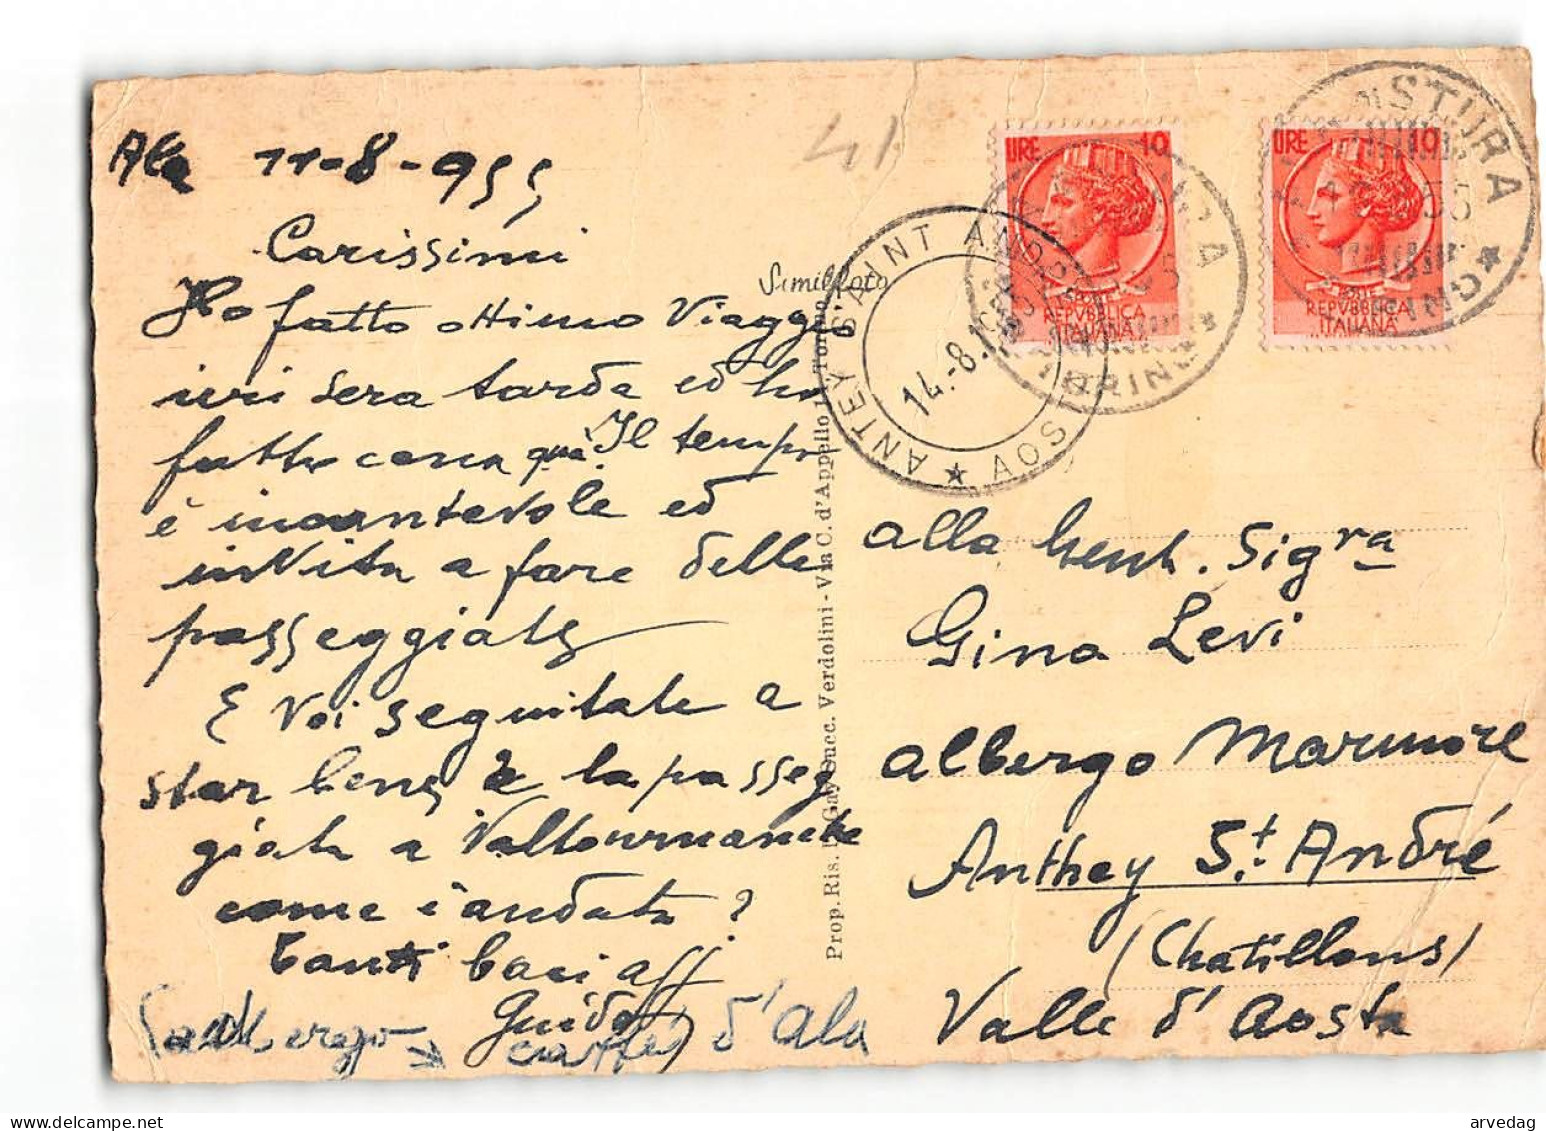 Ala 11-8-955
41
Carissimi
Ho fatto ottimo Viaggio
ieri sera tarda ed ho
fatto cena quà. Il tempo
è incantevole ed
invita a fare delle
passeggiate
E Voi seguitate a
star bene e la passeg
giata a Valtournanche
come è andata?
Tanti baci aff
Guido
albergo d'Ala
Similfoto
Prop. Ris. Gay Succ. Verdolini - Via C. d'Appello Torino
LIRE 10
REPVBBLICA
ITALIANA
LIRE 10
REPVBBLICA
ITALIANA
STURA
TORINO
ANTEY SAINT ANDRE
AOSTA
14.-8.
alla Gent. Sigra
Gina Levi
albergo Marmore
Anthey S.t André
(Chatillons)
Valle d'Aosta
arvedag